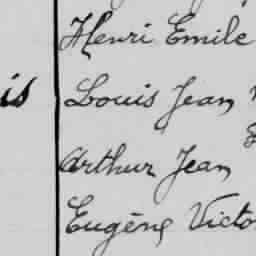 Henri Emile
is Louis Jean
Arthur Jean
Eugène Victo